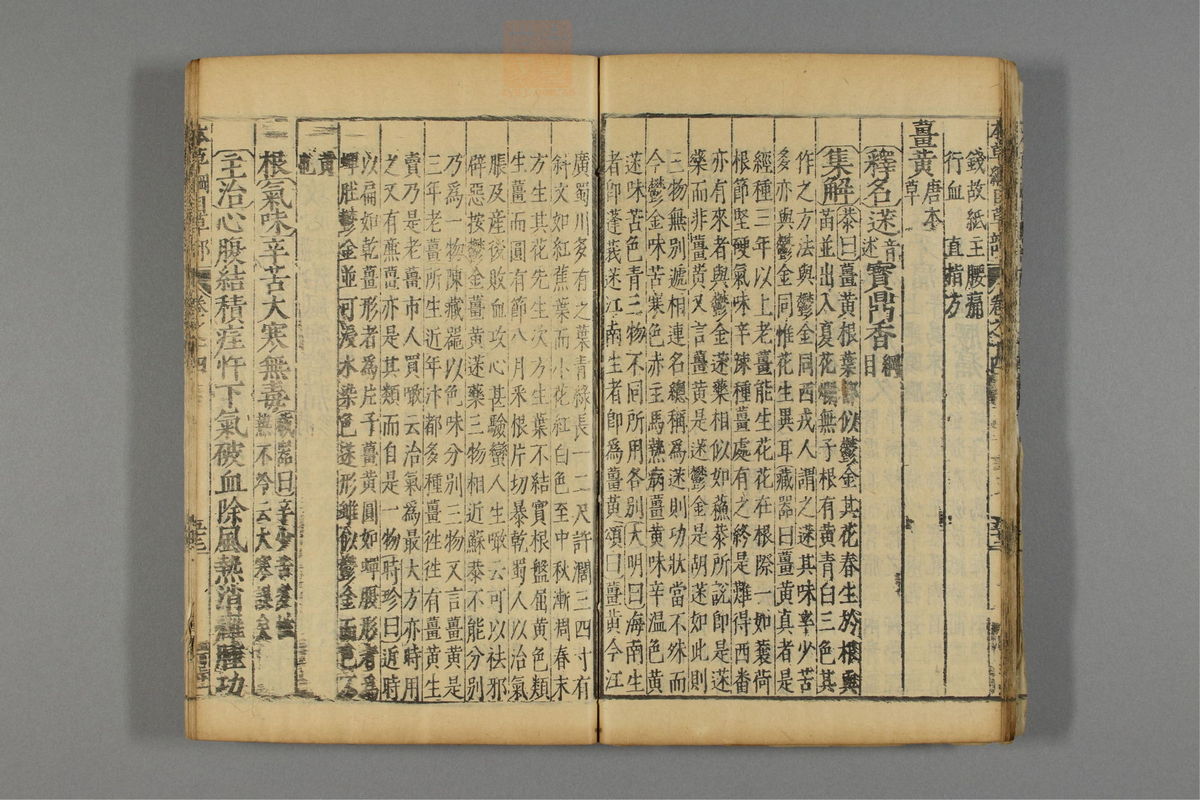 錢故紙主腰痛
行血 直指方
薑黃唐本草
釋名蒁音述寶鼎香綱目
集解恭曰薑黃根葉都似鬱金其花春生於根與
苗並出入夏花爛無子根有黃青白三色其
作之方法與鬱金同西戎人謂之蒁其味辛少苦
多亦與鬱金同惟花生異耳藏器曰薑黃真者是
經種三年以上老薑能生花花在根際一如蘘荷
根節堅硬氣味辛辣種薑處有之終是難得西番
亦有來者與鬱金蒁藥相似如蘇恭所說即是蒁
藥而非薑黃又言薑黃是蒁鬱金是胡蒁如此則
三物無別遞相連名總稱為蒁則功狀當不殊而
今鬱金味苦寒色赤主馬熱病薑黃味辛溫色黃
蒁味苦色青三物不同所用各別大明曰海南生
者即蓬莪蒁江南生者即為薑黃頌曰薑黃今江
廣蜀川多有之葉青綠長一二尺許濶三四寸有
斜文如紅蕉葉而小花紅白色至中秋漸凋春末
方生其花先生次方生葉不結實根盤屈黃色類
生薑而圓有節八月采根片切暴乾蜀人以治氣
脹及產後敗血攻心甚驗蠻人生噉云可以祛邪
辟惡按鬱金薑黃蒁藥三物相近蘇恭不能分別
乃為一物陳藏器以色味分別三物又言薑黃是
三年老薑所生近年汴都多種薑往往有薑黃生
賣乃是老薑市人買噉云治氣為最大方亦時用
之又有廉薑亦是其類而自是一物時珍曰近時
以扁如乾薑形者為片子薑黃圓如蟬腹形者為
蟬肚鬱金並可浸水染色蒁形雖似鬱金而色不
黃
根氣味辛苦大寒無毒藏器曰辛少苦多性熱不冷云大寒誤矣
主治心腹結積疰忤下氣破血除風熱消癰腫功